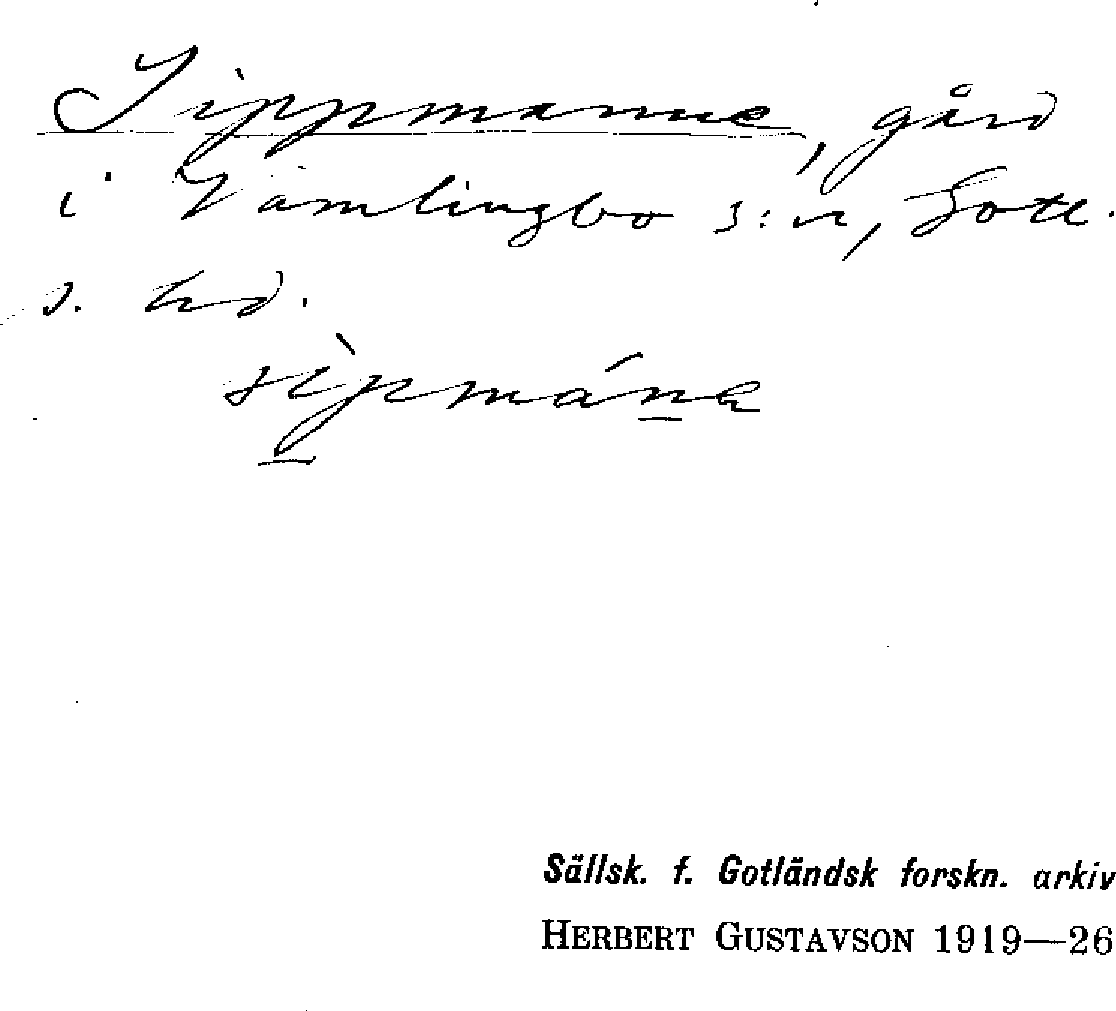 Sippmanne, gård
i Vamlingbo s:n, Gotl.
s. hd.
sìpmánə
Sällsk. f. Gotländsk forskn. arkiv
HERBERT GUSTAVSON 1919—26